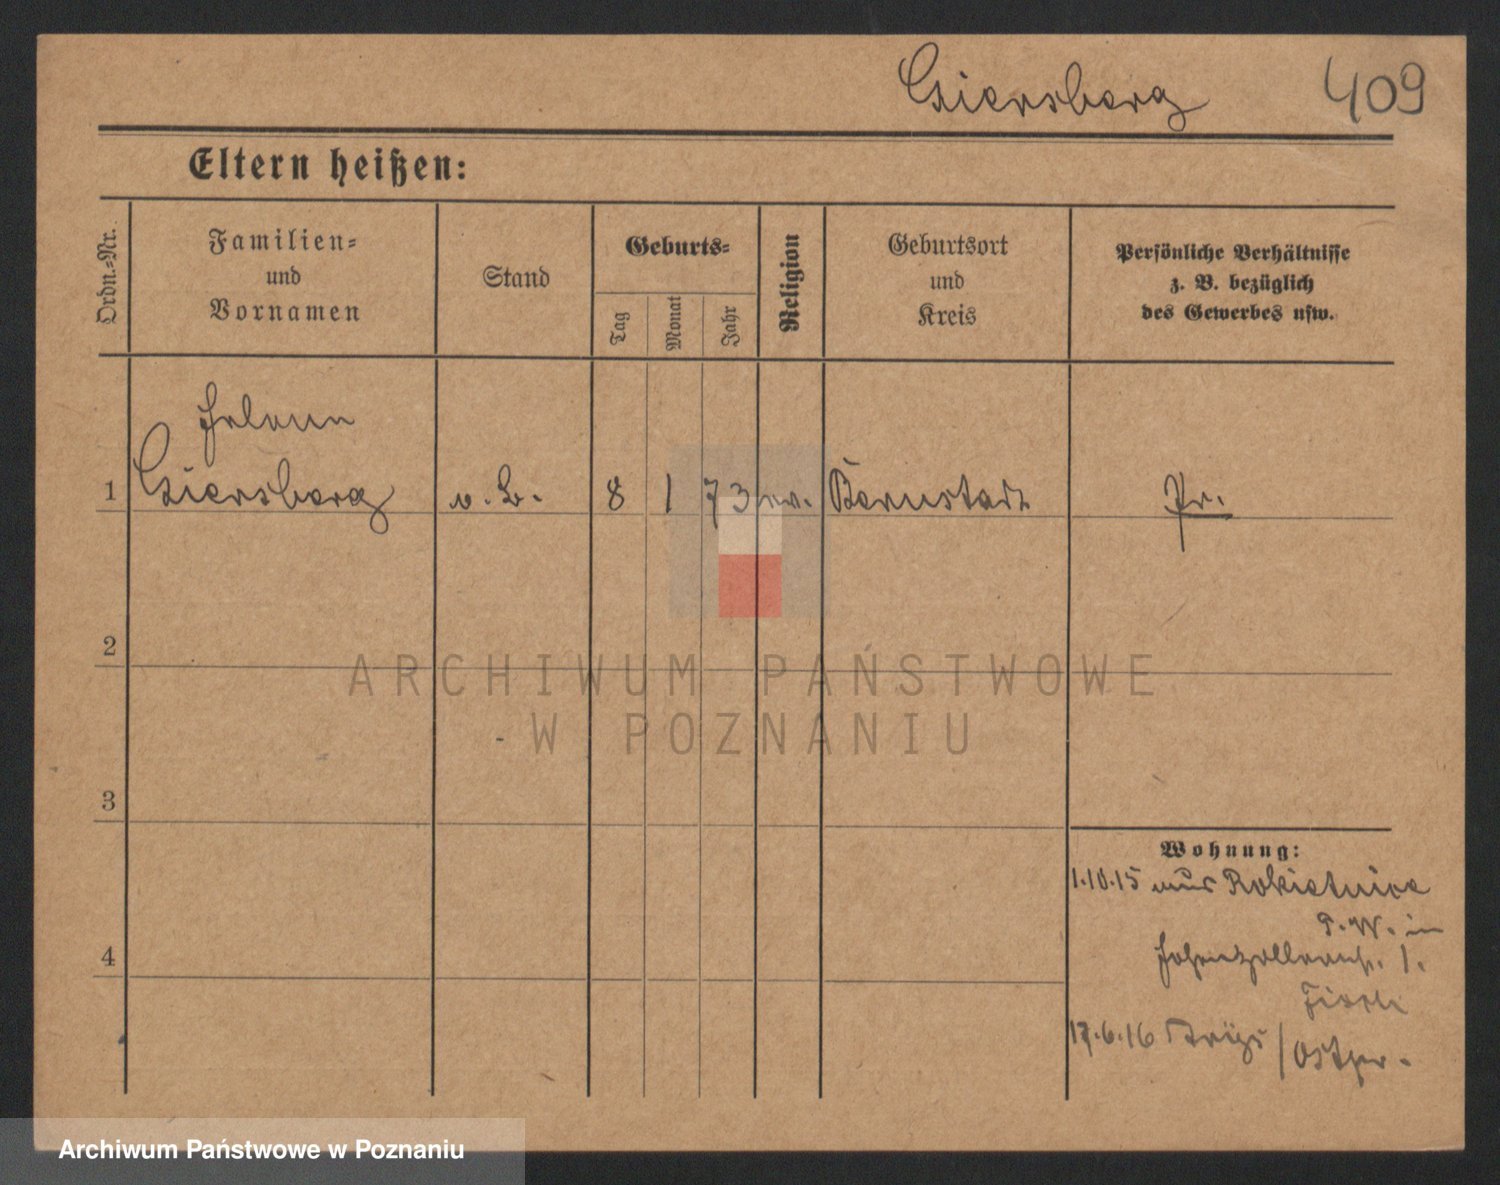 Giersberg 409
Eltern heißen:
Ordn.-Nr.
Familien-
und
Vornamen
Stand
Geburts-
Tag
Monat
Jahr
Religion
Geburtsort
und
Kreis
Persönliche Verhältnisse
z. B. bezüglich
des Gewerbes usw.
Helene
1 Giersberg o. B. 8 1 73 ev. Bernstadt Pr.
2
3
4
Wohnung:
1.10.15 aus Rokietnica
P. W. in
Hohenzollernstr. 1.
17.6.16 / Ostpr.
ARCHIWUM PAŃSTWOWE
W POZNANIU
Archiwum Państwowe w Poznaniu